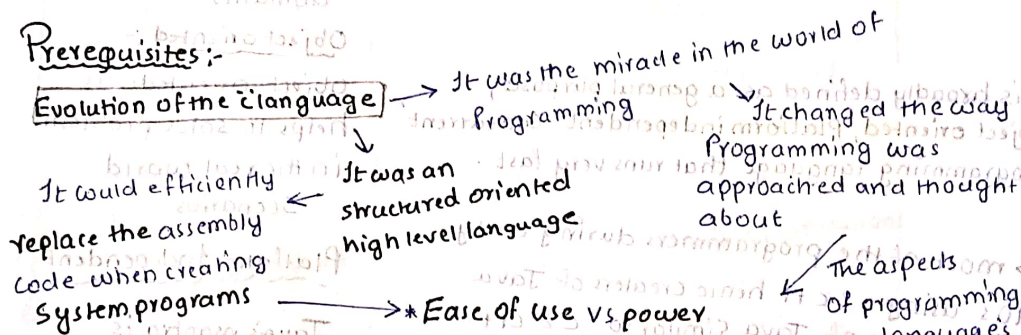 Prerequisites:-
Evolution of the C language → It was the miracle in the world of
Programming
It changed the way
Programming was
approached and thought
about
It was an
structured oriented
high level language
It could efficiently
replace the assembly
code when creating
System programs
* Ease of use vs power
The aspects
of programming
languages